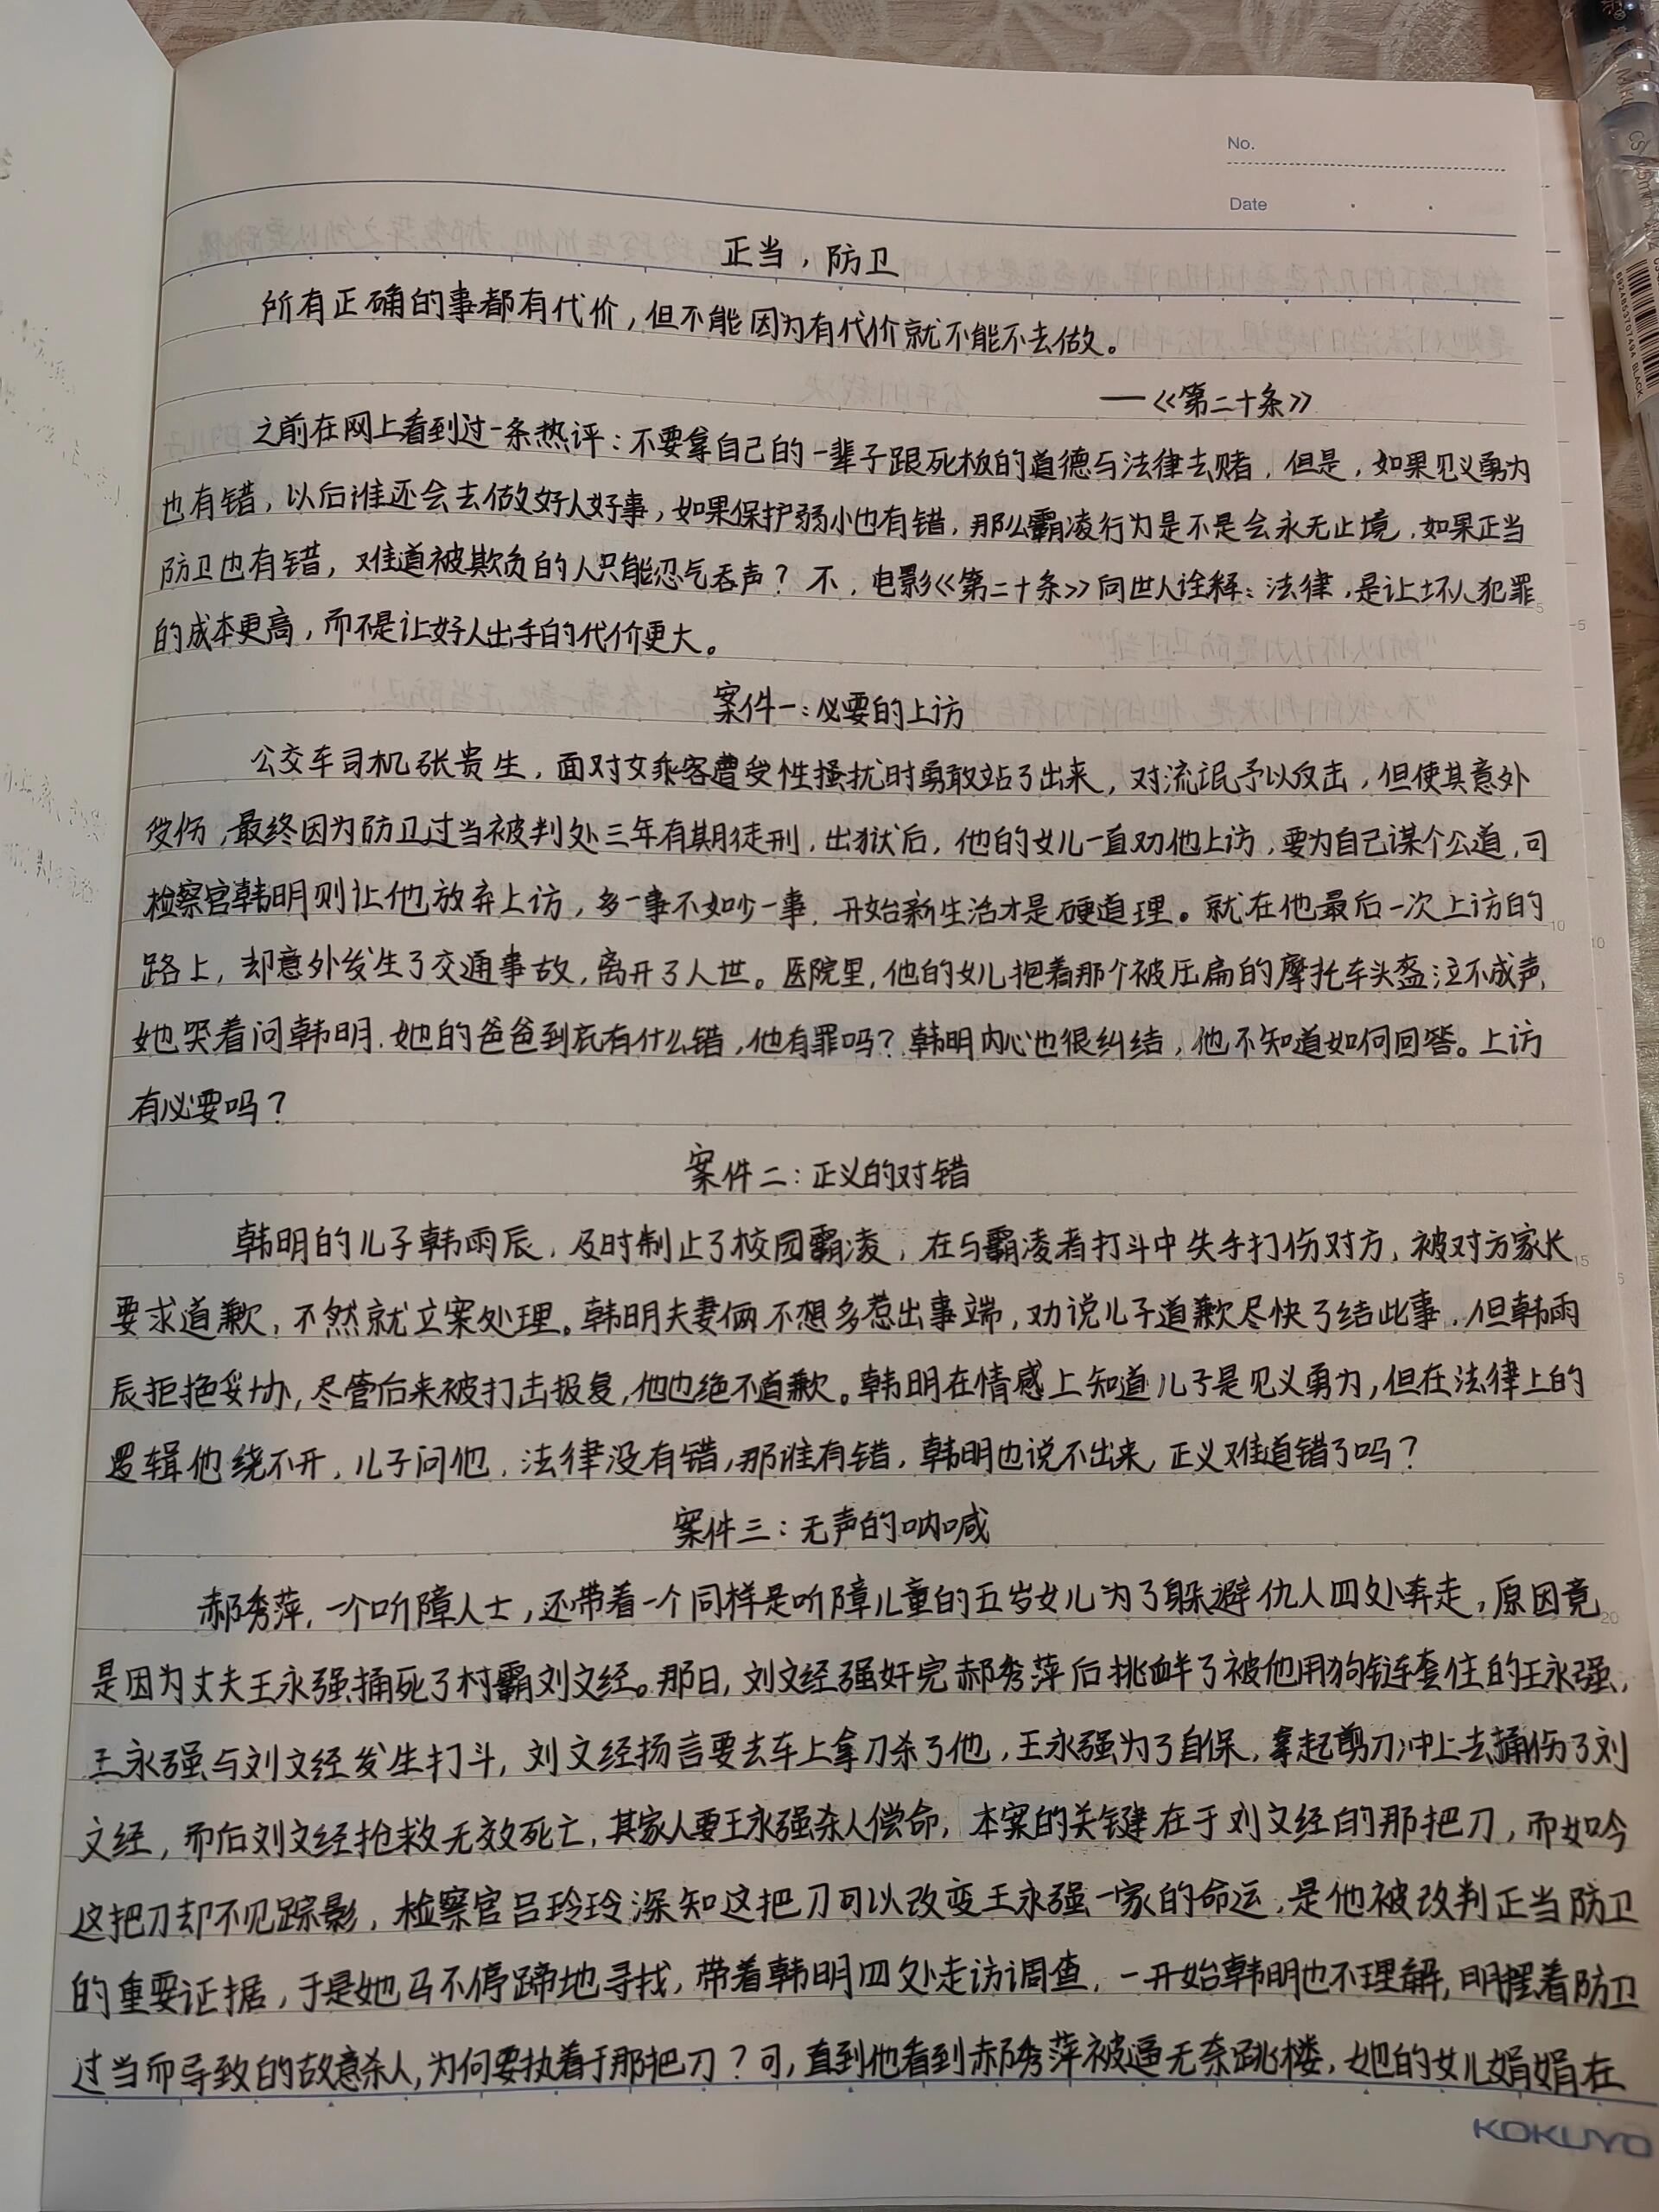 No.
Date
正当，防卫
所有正确的事都有代价，但不能因为有代价就不能不去做。
——《第二十条》
之前在网上看到过一条热评：不要拿自己的一辈子跟死板的道德与法律去赌，但是，如果见义勇为
也有错，以后谁还会去做好人好事，如果保护弱小也有错，那么霸凌行为是不是会永无止境，如果正当
防卫也有错，难道被欺负的人只能忍气吞声？不，电影《第二十条》向世人诠释：法律，是让坏人犯罪
的成本更高，而不是让好人出手的代价更大。
案件一：必要的上访
公交车司机张贵生，面对女乘客遭受性骚扰时勇敢站了出来，对流氓予以反击，但使其意外
受伤，最终因为防卫过当被判处三年有期徒刑，出狱后，他的女儿一直劝他上访，要为自己谋个公道，可
检察官韩明则让他放弃上访，多一事不如少一事，开始新生活才是硬道理。就在他最后一次上访的
路上，却意外发生了交通事故，离开了人世。医院里，他的女儿抱着那个被压扁的摩托车头盔泣不成声，
她哭着问韩明，她的爸爸到底有什么错，他有罪吗？韩明内心也很纠结，他不知道如何回答。上访
有必要吗？
案件二：正义的对错
韩明的儿子韩雨辰，及时制止了校园霸凌，在与霸凌者打斗中失手打伤对方，被对方家长
要求道歉，不然就立案处理。韩明夫妻俩不想多惹出事端，劝说儿子道歉尽快了结此事，但韩雨
辰拒绝妥协，尽管后来被打击报复，他也绝不道歉。韩明在情感上知道儿子是见义勇为，但在法律上的
逻辑他绕不开，儿子问他，法律没有错，那谁有错，韩明也说不出来，正义难道错了吗？
案件三：无声的呐喊
郝秀萍，一个听障人士，还带着一个同样是听障儿童的五岁女儿为了躲避仇人四处奔走，原因竟
是因为丈夫王永强捅死了村霸刘文经。那日，刘文经强奸完郝秀萍后挑衅了被他用狗链套住的王永强，
王永强与刘文经发生打斗，刘文经扬言要去车上拿刀杀了他，王永强为了自保，拿起剪刀冲上去捅伤了刘
文经，而后刘文经抢救无效死亡，其家人要王永强杀人偿命，本案的关键在于刘文经的那把刀，而如今
这把刀却不见踪影，检察官吕玲玲深知这把刀可以改变王永强一家的命运，是他被改判正当防卫
的重要证据，于是她马不停蹄地寻找，带着韩明四处走访调查，一开始韩明也不理解，明摆着防卫
过当而导致的故意杀人，为何要执着于那把刀？可，直到他看到郝秀萍被逼无奈跳楼，她的女儿娟娟在
KOKUYO